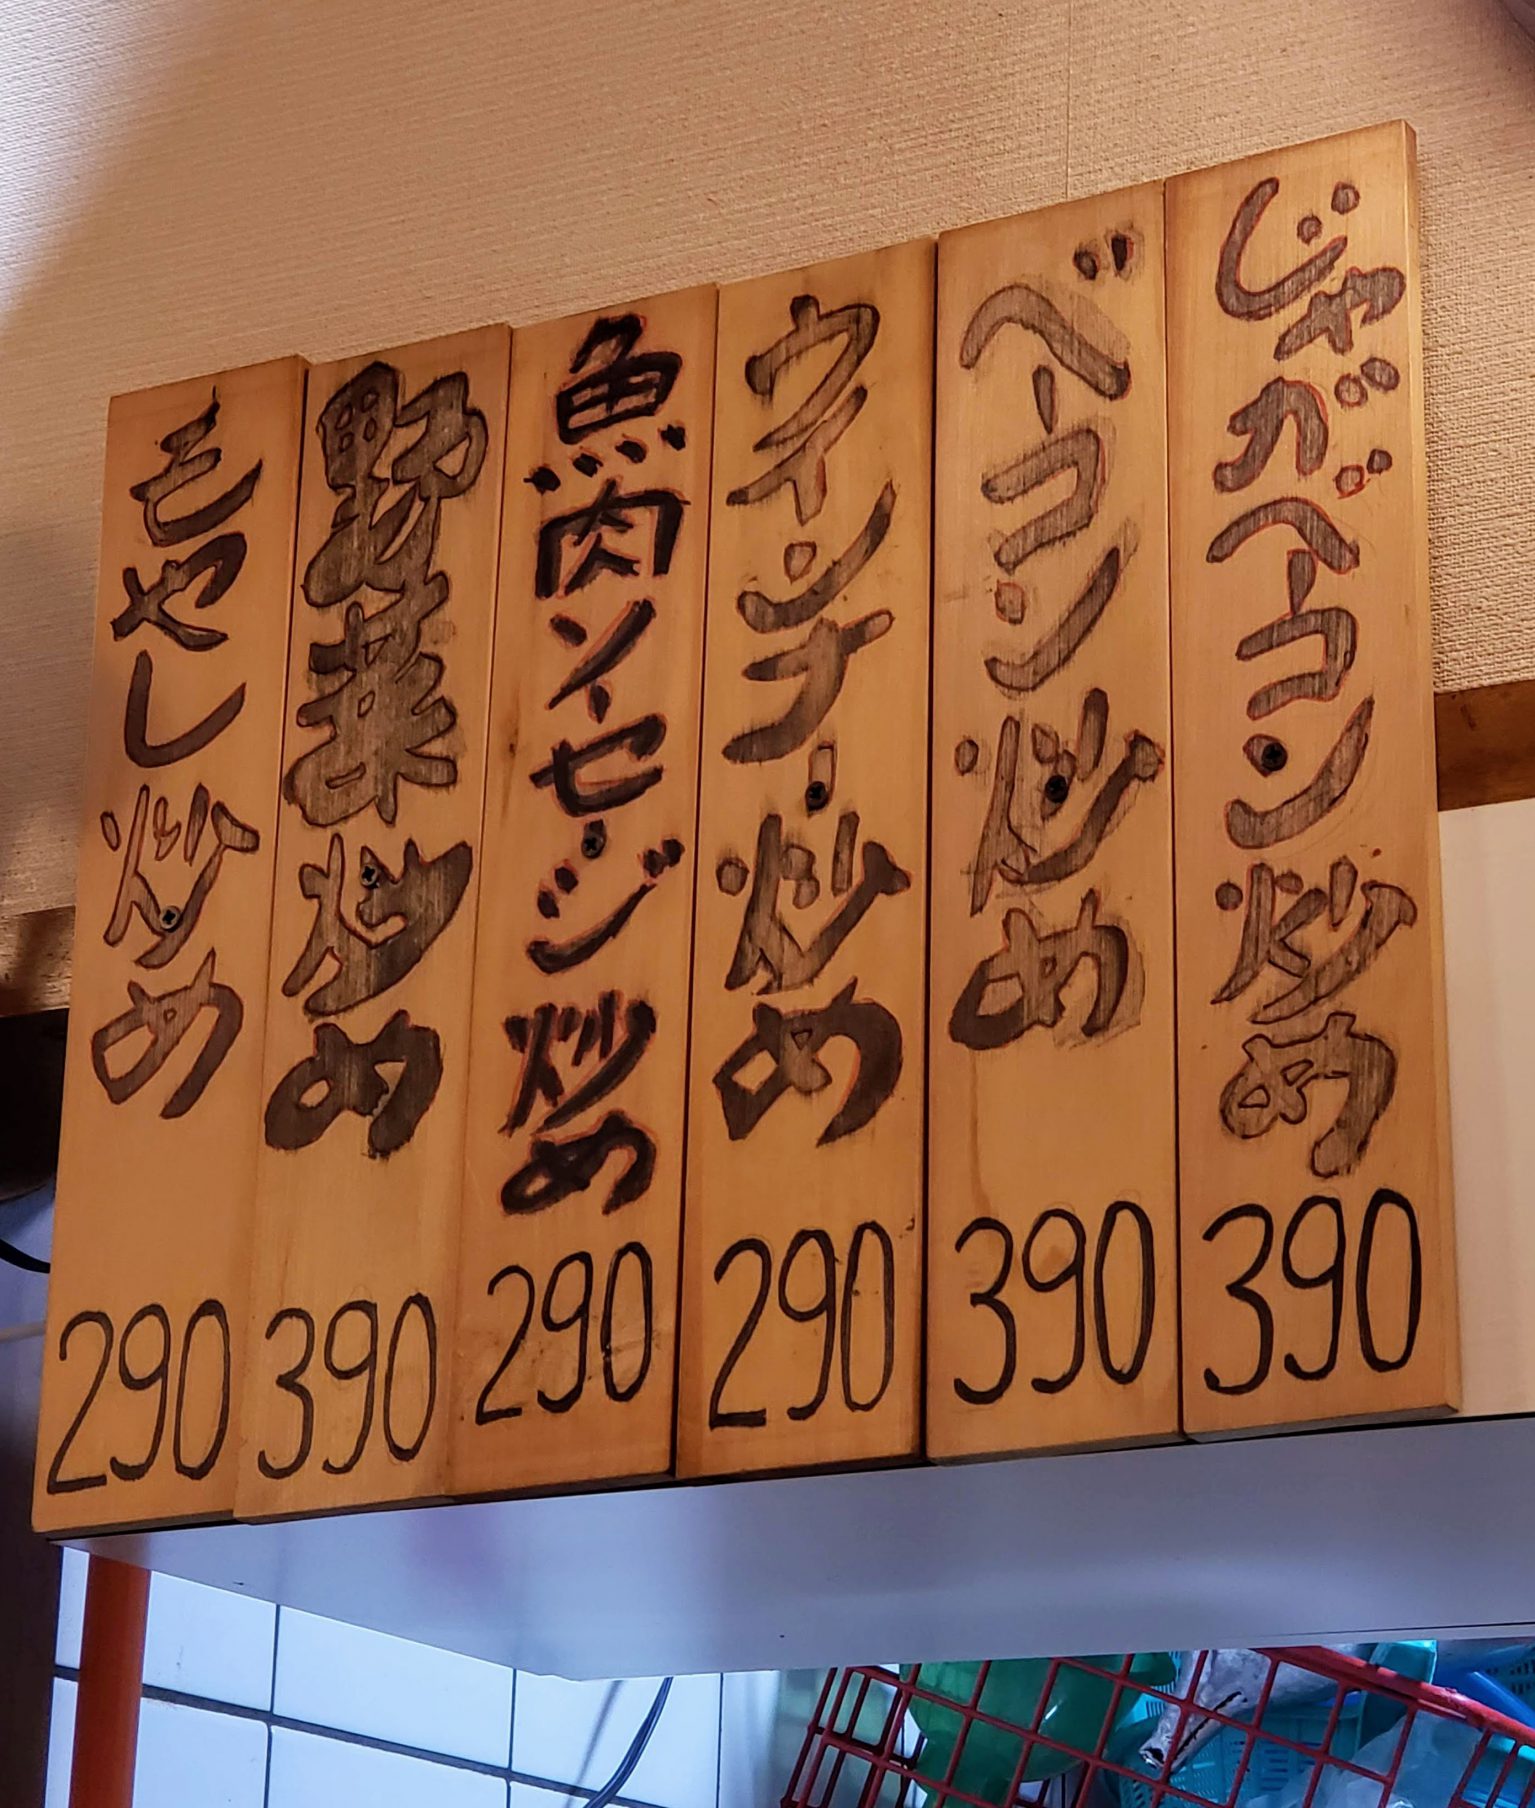 じゃがベーコン炒め
390
ベーコン炒め
390
ウインナー炒め
290
魚肉ソーセージ炒め
290
野菜炒め
390
もやし炒め
290